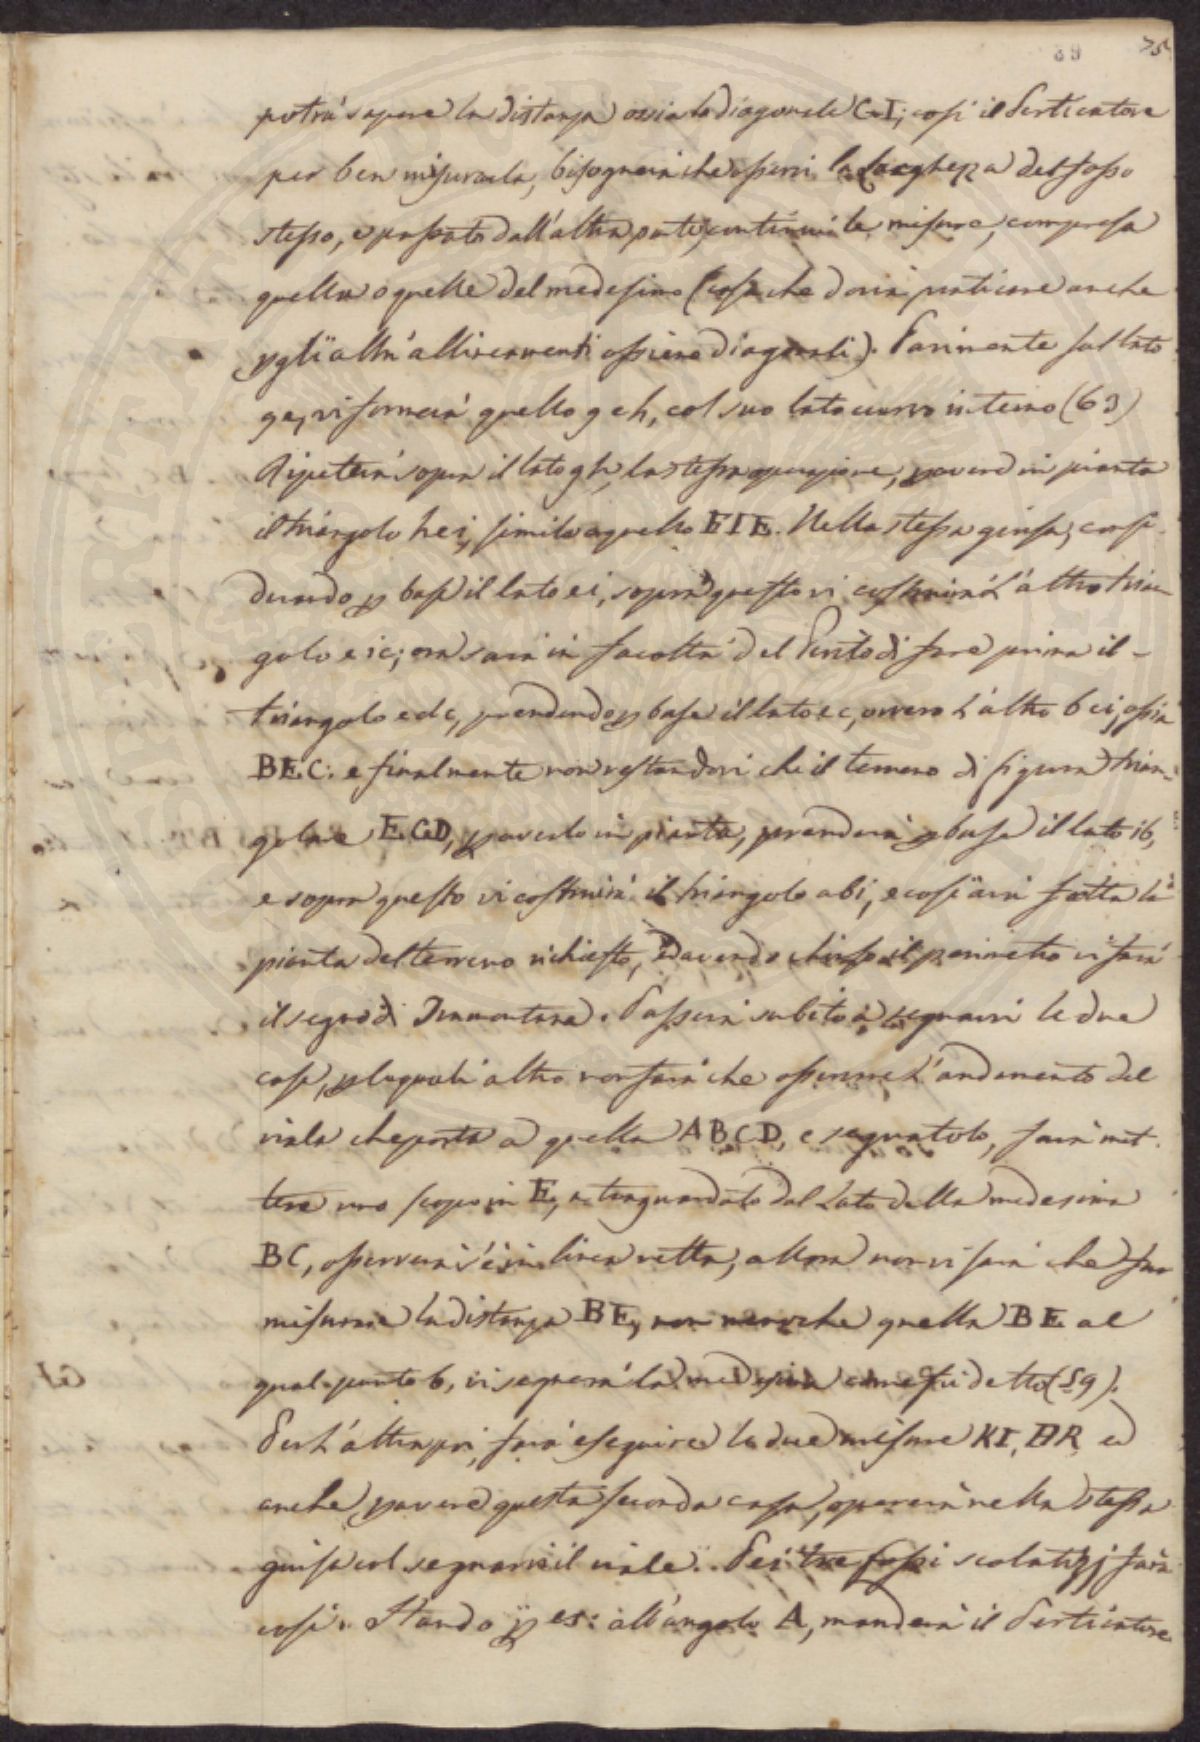 39 75
potrà sapere la distanza ossia la diagonale GI; così il Perticatore
per ben misurarla, bisognerà che osservi la larghezza del fosso
stesso, e passato dall'altra parte, continui le misure, compresa
quella o quelle del medesimo (cosa che dovrà praticare anche
pgli altri allineamenti ossieno diagonali). Parimente sul lato
ge, vi formerà quello geh, col suo lato curvo interno (63)
Ripeterà sopra il lato gh, la stessa operazione, p avere in pianta
il triangolo hei, simile a quello EIE. Nella stessa guisa, consi-
derando p base il lato ei, sopra questo vi costruirà l'altro trian
golo eic; ora sarà in facoltà del Perito di fare prima il -
triangolo edc, prendendo p base il lato ec, ovvero l'altro bci, ossia
BEC: e finalmente non restandovi che il terreno di figura trian-
golare EGD, p averlo in pianta, prenderà p base il lato ib,
e sopra questo vi costruirà il triangolo abi, e così avrà fatta la
pianta del terreno richiesto, ed avendo chiuso il perimetro vi farà
il segno di Tramontana. Passerà subito a segnarvi le due
case, p le quali altro non farà che osservare l'andamento del
viale che porta a quella ABCD, e segnatolo, farà met-
tere uno scopo in E, e traguardato dal lato della medesima
BC, osserverà s'è in linea retta, allora non vi sarà che far
misurare la distanza BE, non meno che quella BE al
qual punto b, vi segnerà la medesima come fu detto (59).
Per l'altra poi, farà eseguire le due misure KI, HR, ed
anche p avere questa seconda casa, opererà nella stessa
guisa col segnarvi il viale. Pei tre fossi scolatizj farà
così. Stando p es: all'angolo A, manderà il Perticatore